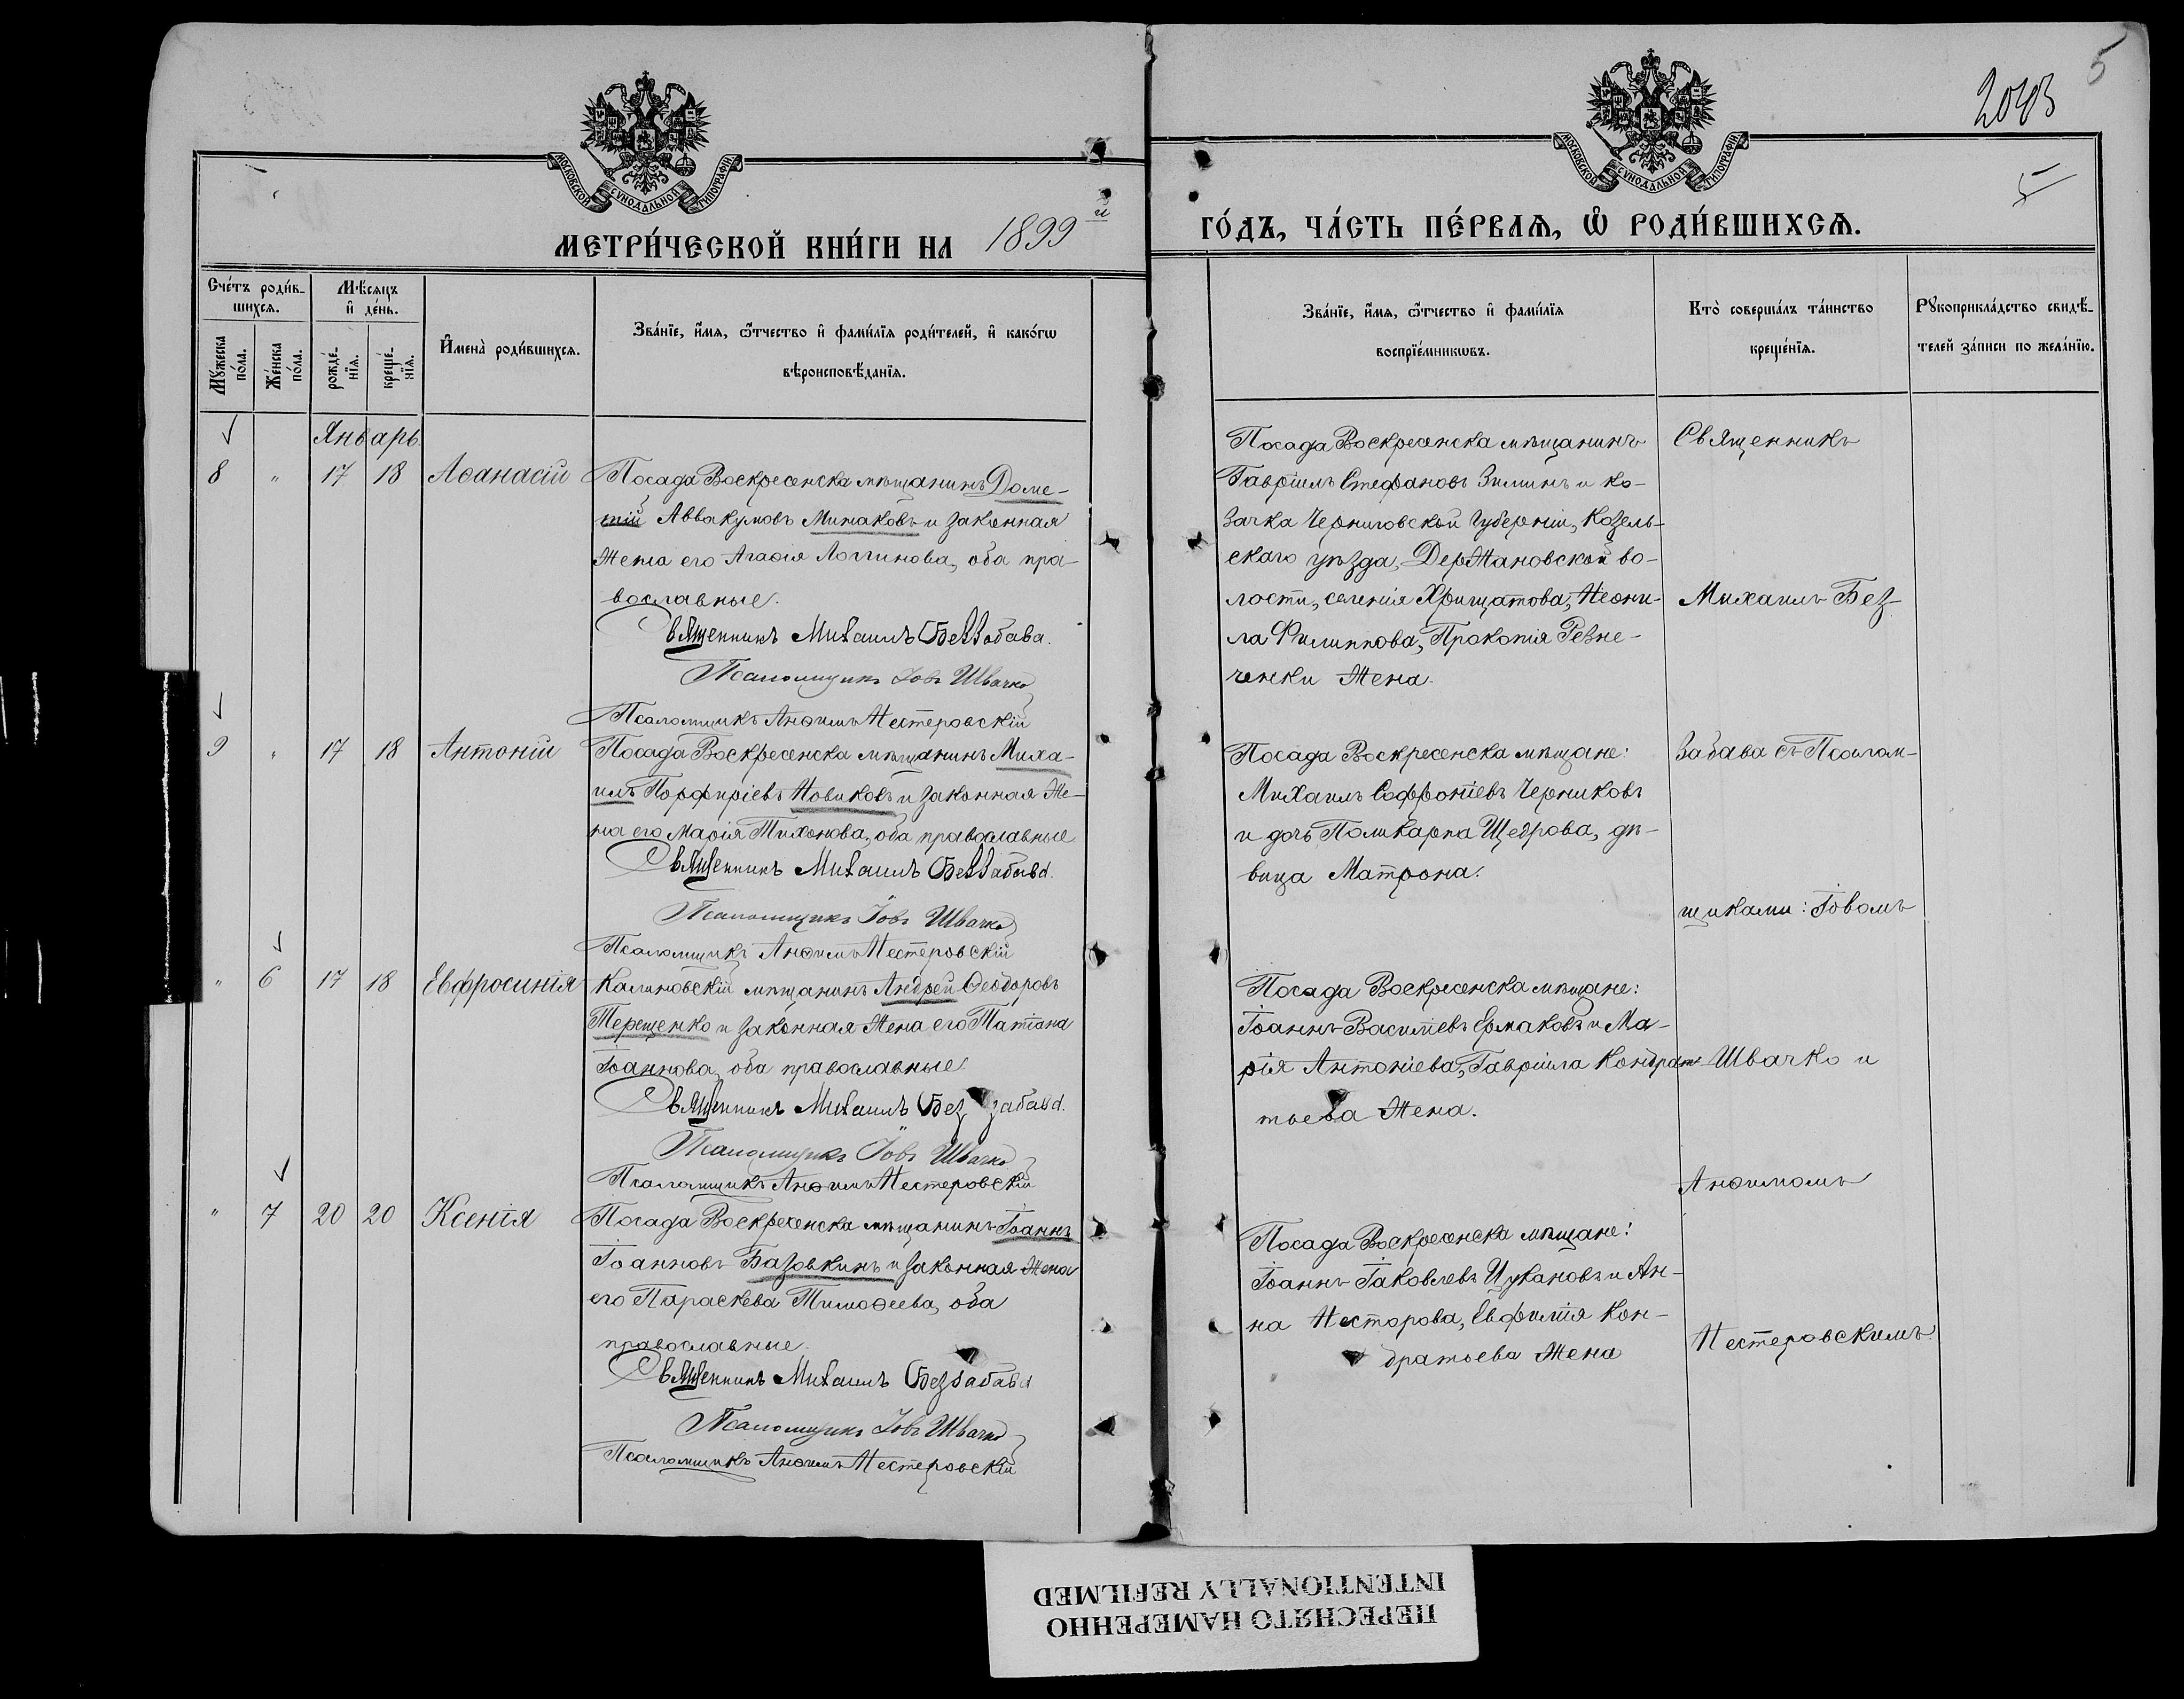 5
2043
5
МОСКОВСКОЙ СѴНОДАЛЬНОЙ ТИПОГРАФІИ
МОСКОВСКОЙ СѴНОДАЛЬНОЙ ТИПОГРАФІИ
МЕТРИ́ЧЕСКОЙ КНИ́ГИ НА 1899й
ГО́ДЪ, ЧА́СТЬ ПЕ́РВАѦ, Ѡ РОДИ́ВШИХСѦ.
Сче́тъ роди́в-
шихсѧ.
Мꙋ́жеска
по́ла.
Же́нска
по́ла.
Мѣ́сѧцъ
и҆ де́нь.
рожде́-
нїѧ.
креще́-
нїѧ.
И҆мена̀ роди́вшихсѧ.
Зва́нїе, и҆́мѧ, ѻ҆́тчество и҆ фами́лїѧ роди́телей, и҆ како́гѡ
вѣроисповѣ́данїѧ.
Зва́нїе, и҆́мѧ, ѻ҆́тчество и҆ фами́лїѧ
воспрїе́мникѡвъ.
Кто̀ соверша́лъ та́инство
креще́нїѧ.
Рꙋкоприкла́дство свидѣ́-
телей за́писи по жела́нїю.
Январь.
8 " 17 18 Аѳанасій
Посада Воскресенска мѣщанинъ Доме-
тій Аввакумовъ Минаковъ и законная
жена его Агаѳія Логгинова, оба пра-
вославные.
Священникъ Михаилъ Беззабава.
Псаломщикъ Іовъ Швачко
Псаломщикъ Анѳимъ Нестеровскій
Посада Воскресенска мѣщанинъ
Гавріилъ Стефановъ Зиминъ и ко-
зачка Черниговской губерніи, Козель-
скаго уѣзда, Держановской во-
лости, селенія Хрищатова, Неони-
ла Филиппова, Прокопія Резне-
ченки жена.
9 " 17 18 Антоній
Посада Воскресенска мѣщанинъ Миха-
илъ Порфиріевъ Новиковъ и законная же-
на его Марія Тихонова, оба православные
Священникъ Михаилъ Беззабава.
Псаломщикъ Іовъ Швачко
Псаломщикъ Анѳимъ Нестеровскій
Посада Воскресенска мѣщане:
Михаилъ Софроніевъ Черниковъ
и дочь Поликарпа Щедрова, дѣ-
вица Матрона.
" 6 17 18 Евфросинія
Калиновскій мѣщанинъ Андрей Ѳеодоровъ
Терещенко и законная жена его Татіана
Іоаннова, оба православные
Священникъ Михаилъ Беззабава.
Псаломщикъ Іовъ Швачко
Псаломщикъ Анѳимъ Нестеровскій
Посада Воскресенска мѣщане:
Іоаннъ Василіевъ Ермаковъ и Ма-
рія Антоніева, Гавріила Кондрат-
тьева жена.
" 7 20 20 Ксенія
Посада Воскресенска мѣщанинъ Іоаннъ
Іоанновъ Базовкинъ и законная жена
его Параскева Тимоѳеева, оба
православные.
Священникъ Михаилъ Беззабава
Псаломщикъ Іовъ Швачко
Псаломщикъ Анѳимъ Нестеровскій
Посада Воскресенска мѣщане:
Іоаннъ Іаковлевъ Цукановъ и Ан-
на Несторова, Евфимія Кон-
дратьева жена
Священникъ
Михаилъ Без
забава съ Псалом-
щиками: Іовомъ
Швачко и
Анѳимомъ
Нестеровскимъ
ПЕРЕСНЯТО НАМЕРЕННО
INTENTIONALLY REFILMED